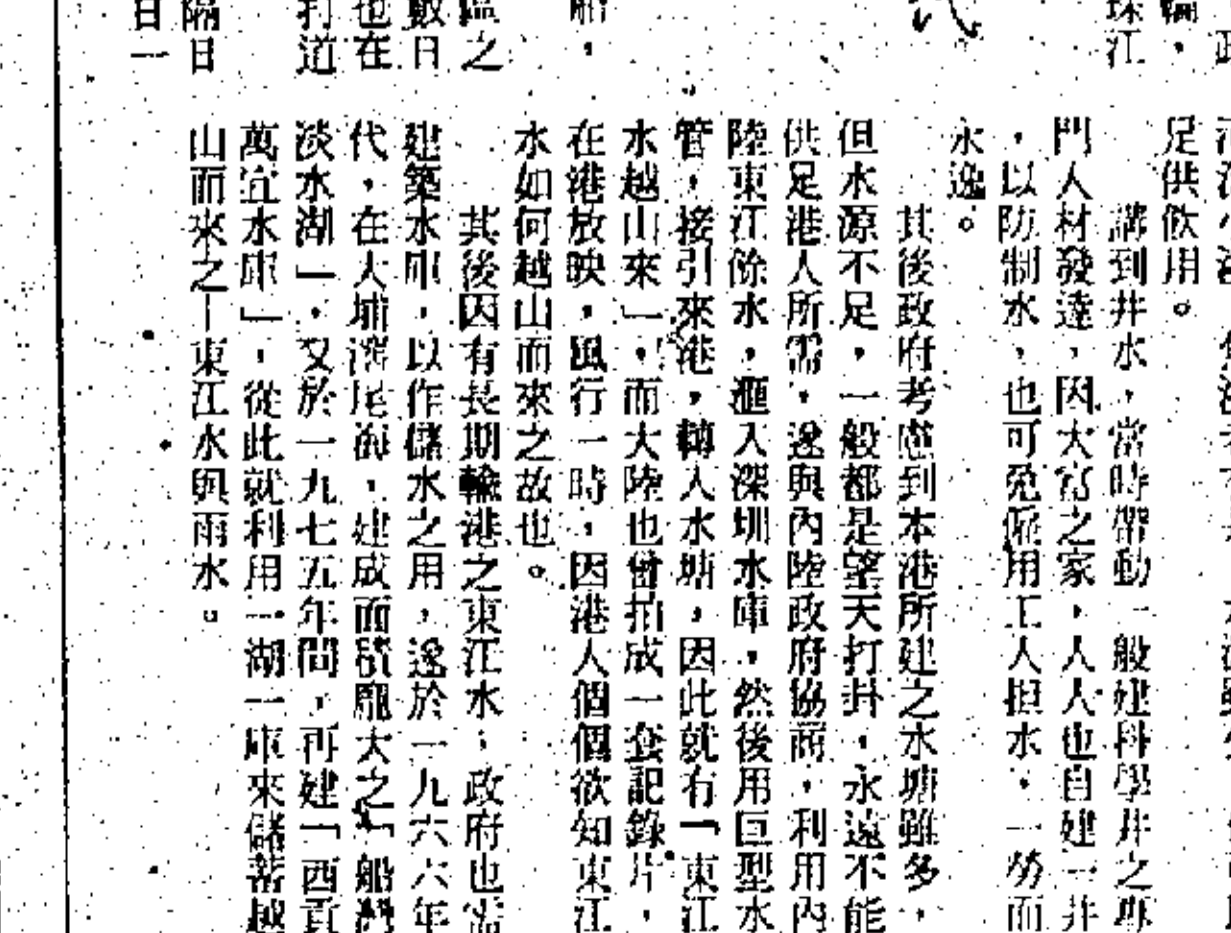 足供飲用。
講到井水，當時帶動一般建科學井之專
門人材發達，因大富之家，人人也自建一井
，以防制水，也可免僱用工人担水，一勞而
永逸。
其後政府考慮到本港所建之水塘雖多，
但水源不足，一般都是望天打卦，永遠不能
供足港人所需，遂與內陸政府協商，利用內
陸東江餘水，滙入深圳水庫，然後用巨型水
管，接引來港，轉入水塘，因此就有「東江
水越山來」，而大陸也曾拍成一套記錄片，
在港放映，風行一時，因港人個個欲知東江
水如何越山而來之故也。
其後因有長期輸港之東江水，政府也需
建築水庫，以作儲水之用，遂於一九六六年
代，在大埔滘尾海，建成面積龐大之「船灣
淡水湖」，又於一九七五年間，再建「西貢
萬宜水庫」，從此就利用一湖一庫來儲蓄越
山而來之—東江水與雨水。
珠江
之
數日
也在
打道
隔日
日一